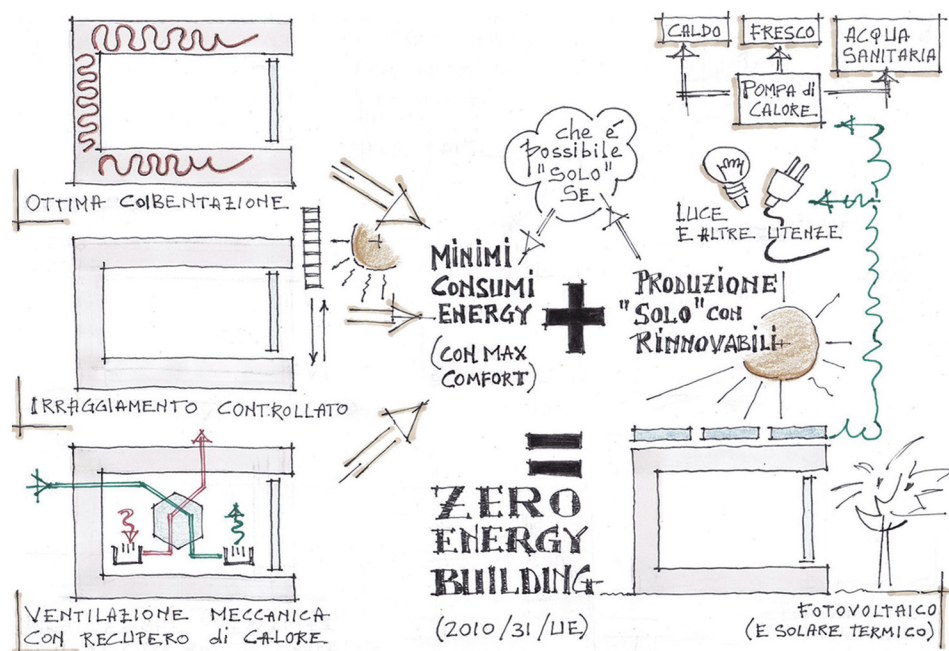 OTTIMA COIBENTAZIONE
IRRAGGIAMENTO CONTROLLATO
VENTILAZIONE MECCANICA
CON RECUPERO di CALORE
che é
possibile
"SOLO"
SE
MINIMI
CONSUMI
ENERGY
(CON MAX
COMFORT)
+
PRODUZIONE
"SOLO" CON
RINNOVABILI
=
ZERO
ENERGY
BUILDING
(2010/31/UE)
CALDO
FRESCO
ACQUA
SANITARIA
POMPA di
CALORE
LUCE
E ALTRE UTENZE
FOTOVOLTAICO
(E SOLARE TERMICO)